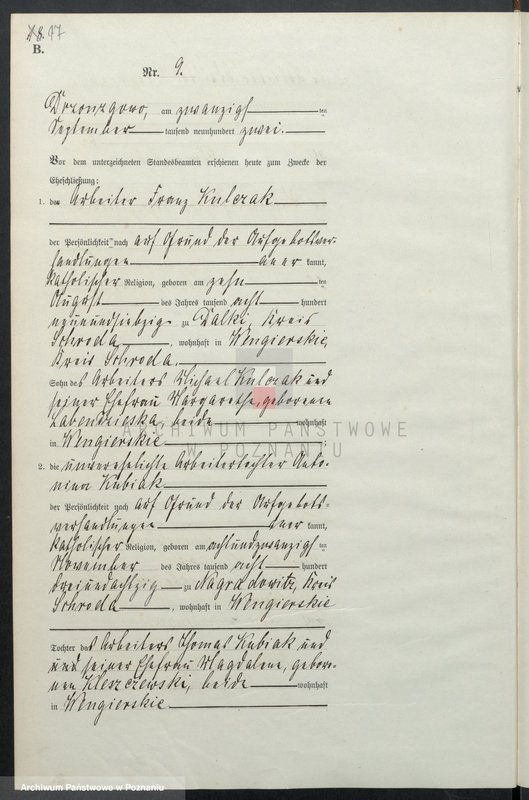 18. 17
B.
Nr. 9.
Dzonzgowo, am zwanzigsten
September tausend neunhundert zwei.
Vor dem unterzeichneten Standesbeamten erschienen heute zum Zwecke der
Eheschließung:
1. der Arbeiter Franz Kulczak
der Persönlichkeit nach auf Grund der Aufgebotsver-
handlungen aner kannt,
katholischer Religion, geboren am zehnten
August des Jahres tausend acht hundert
neunundsiebzig zu Talki, Kreis
Schroda, wohnhaft in Wengierskie,
Kreis Schroda,
Sohn des Arbeiters Michael Kulczak und
seiner Ehefrau Margarethe, geborenen
beide wohnhaft
in Wengierskie
2. die unverehelichte Arbeitertochter Anto-
nina Kubiak
der Persönlichkeit nach auf Grund der Aufgebots-
verhandlungen aner kannt,
katholischer Religion, geboren am achtundzwanzigsten
November des Jahres tausend acht hundert
dreiundachtzig zu Nagradowitz, Kreis
Schroda, wohnhaft in Wengierskie
Tochter des Arbeiters Thomas Kubiak und
und seiner Ehefrau Magdalena, gebore-
nen Kleszczewski, beide wohnhaft
in Wengierskie
ARCHIWUM PAŃSTWOWE
W POZNANIU
Archiwum Państwowe w Poznaniu